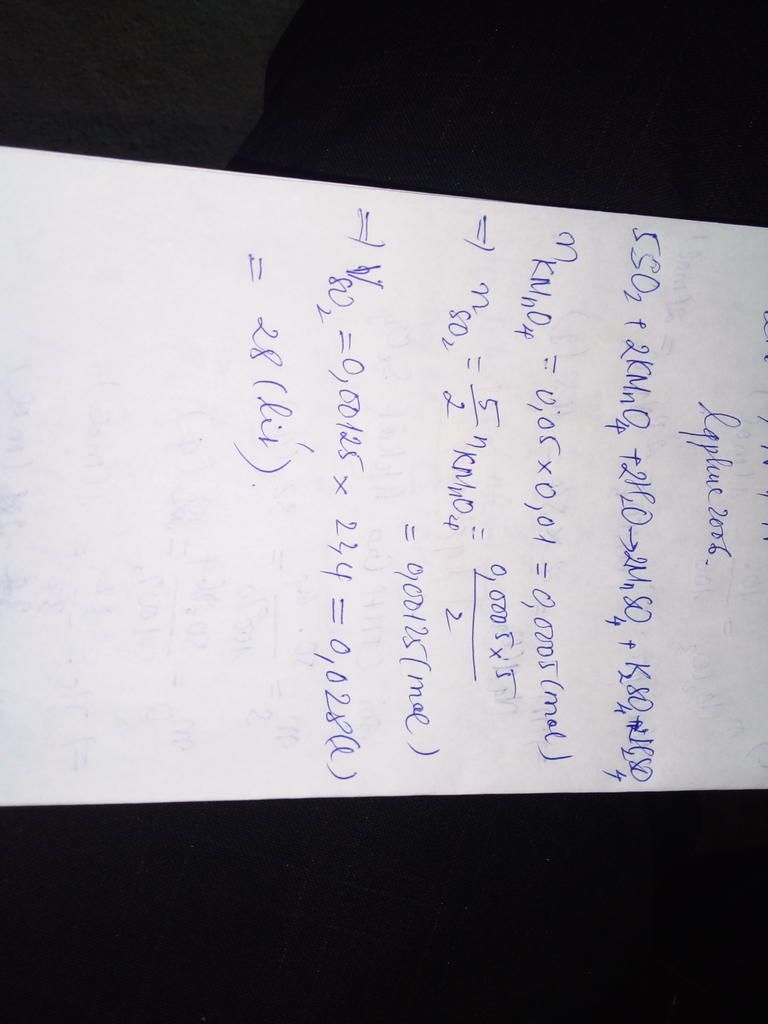 5SO2 + 2KMnO4 + 2H2O → 2MnSO4 + K2SO4 + 2H2SO4
nKMnO4 = 0,05 x 0,01 = 0,0005 (mol)
=) nSO2 = 5/2 nKMnO4 = 0,0005 x 5 / 2
= 0,00125 (mol)
=) VSO2 = 0,00125 x 22,4 = 0,028 (l)
= 28 (lít).